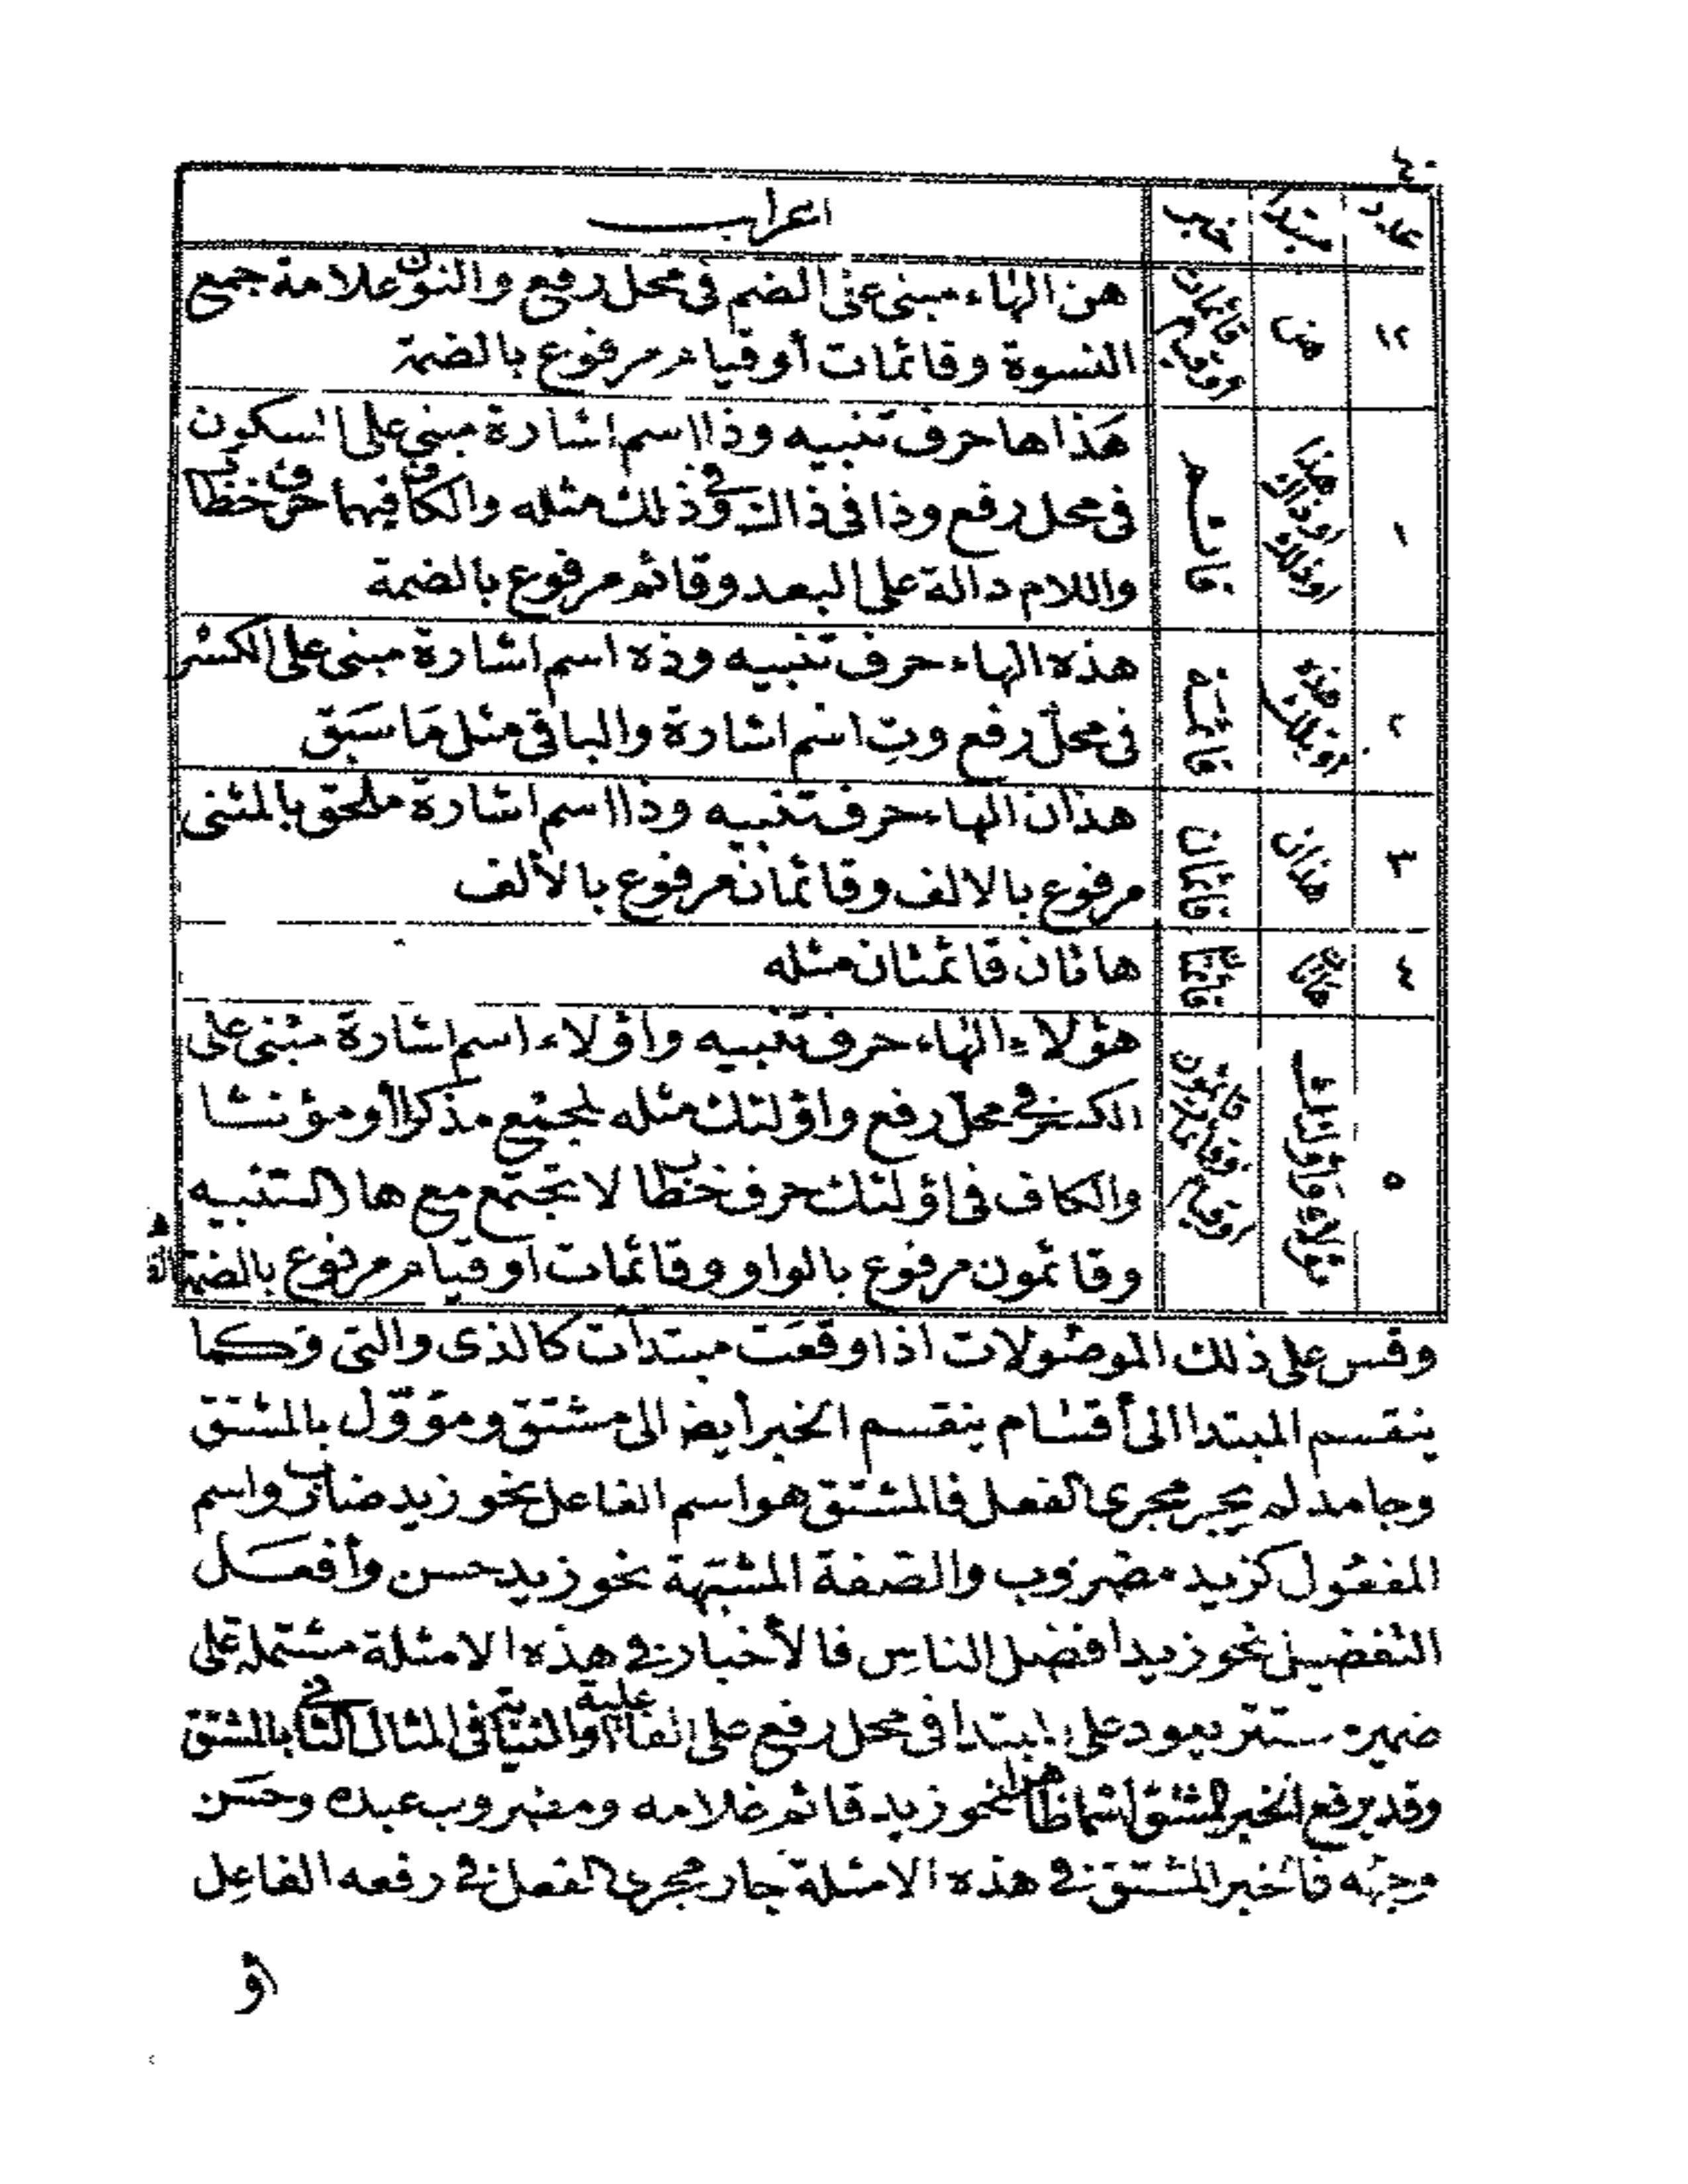 ٤٠
عدد مبتدا خبر اعراب
١٢ هن قائمات أوقيام هن الهاء مبنى على الضم فى محل رفع والنون علامة جمع
النسوة وقائمات أوقيام مرفوع بالضمة
١ هذا اوذاك اوذلك قائم هَذا ها حرف تنبيه وذا اسم اشارة مبنى على السكون
فى محل رفع وذا فى ذاك وفى ذلك مثله والكاف فيهما حرف خطاب
واللام دالة على البعد وقائم مرفوع بالضمة
٢ هذه أوتلك قائمة هذه الهاء حرف تنبيه وذه اسم اشارة مبنى على الكسر
فى محلّ رفع وتِ اسم اشارة والباقى مثل مَا سَبَق
٣ هذان قائمان هذان الهاء حرف تنبيه وذا اسم اشارة ملحق بالمثنى
مرفوع بالالف وقائمان مرفوع بالألف
٤ هاتان قائمتان هاتان قائمتان مثله
٥ هؤلاء وأولئك قائمون وقائمات أوقيام هؤلاء الهاء حرف تنبيه واؤلاء اسم اشارة مبنى على
الكسر فى محلّ رفع واؤلئك مثله لجمع مذكرا أو مؤنثا
والكاف فى اؤلئك حرف خطاب لا تجتمع مع ها التنبيه
وقائمون مرفوع بالواو وقائمات او قيام مرفوع بالضمة
وقس على ذلك الموصُولات اذا وقعَت مبتدآت كالذى والتى وكما
ينقسم المبتدا الى أقسام ينقسم الخبر أيضا الى مشتق ومؤوّل بالمشتق
وجامد لم يجر مجرى الفعل فالمشتق هو اسم الفاعل نحو زيد ضارب واسم
المفعُول كزيد مضروب والصّفة المشبّهة نحو زيد حسن وأفعَل
التفضيل نحو زيد افضل الناسِ فالأخبار فى هذه الامثلة مشتملة على
ضمير مستتر يعود على المبتدا فى محل رفع على الفاعلية أو النيابة فى المثال الثانى بالمشتق
وقد يرفع الخبر المشتق اسما ظاهرا نحو زيد قائم غلامه ومضروب عبده وحسَن
وجهُه فالخبر المشتق فى هذه الامثلة جار مجرى الفعل فى رفعه الفاعِل
أو